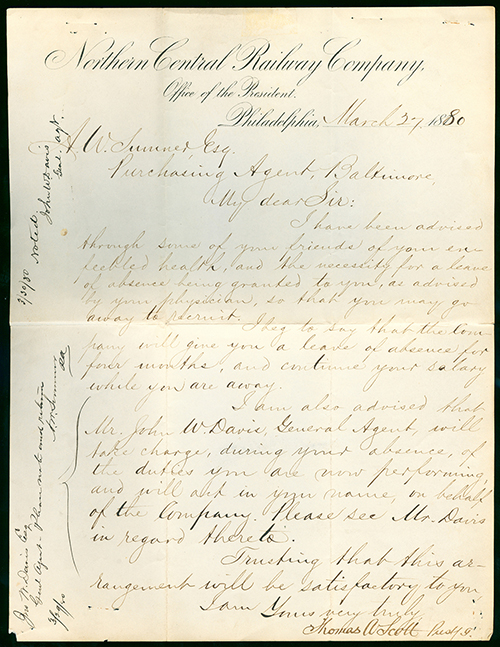 Northern Central Railway Company,
Office of the President.
Philadelphia, March 27 1880
A. W. Sumner, Esq.
Purchasing Agent, Baltimore,
My dear Sir:
I have been advised
through some of your friends of your en-
feebled health, and the necessity for a leave
of absence being granted to you, as advised
by your physician, so that you may go
away to recruit.
I beg to say that the Com-
pany will give you a leave of absence for
four months, and continue your salary
while you are away.
I am also advised that
Mr. John W. Davis, General Agent, will
take charge, during your absence, of
the duties you are now performing,
and will act in your name, on behalf
of the Company. Please see Mr. Davis
in regard thereto.
Trusting that this ar-
rangement will be satisfactory to you,
I am
Yours very truly,
Thomas A Scott Prest
3/30/80 Noted
John W Davis
Genl. agt.
Jno W. Davis Esq
Genl Agent - Please note and return
A. W. Sumner
3/29/80